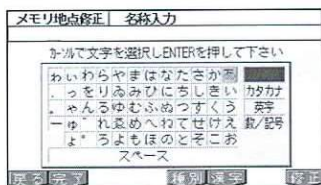 メモリ地点修正 名称入力
カーソルで文字を選択しENTERを押して下さい
わらやまはなたさかあ
っをりゐみひにちしきい カタカナ
ゃんるゆむふぬつすくう 英字
ーゅ゛れゑめへねてせけえ 数/記号
ょ゜ろよもほのとそこお
スペース
戻る 完了 種別 漢字 修正